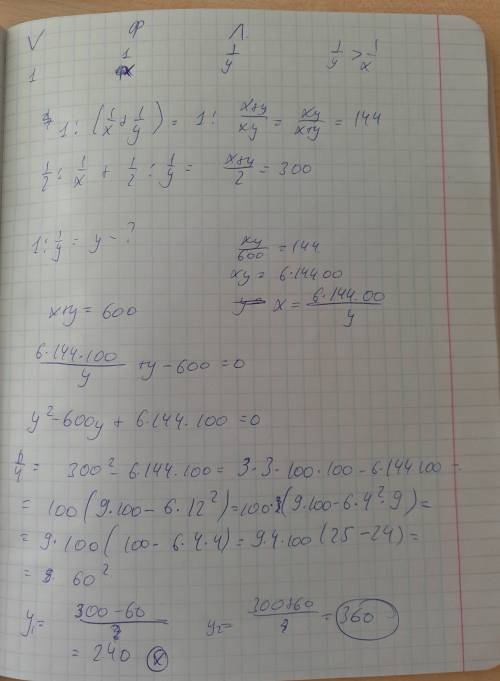 V Ф Л.
1 1/x 1/y 1/y > 1/x
1 : (1/x + 1/y) = 1 : x+y/xy = xy/x+y = 144
1/2 : 1/x + 1/2 : 1/y = x+y/2 = 300
1 : 1/y = y - ?
xy/600 = 144
xy = 6·14400
x+y = 600
x = 6·144·00/y
6·144·100/y + y - 600 = 0
y² - 600y + 6·144·100 = 0
D/4 = 300² - 6·144·100 = 3·3·100·100 - 6·144 100 =
= 100(9·100 - 6·12²) = 100·(9·100 - 6·4²·9) =
= 9·100(100 - 6·4·4) = 9·4·100(25 - 24) =
= 60²
y₁ = 300-60 y₂ = 300+60 = 360
= 240 x